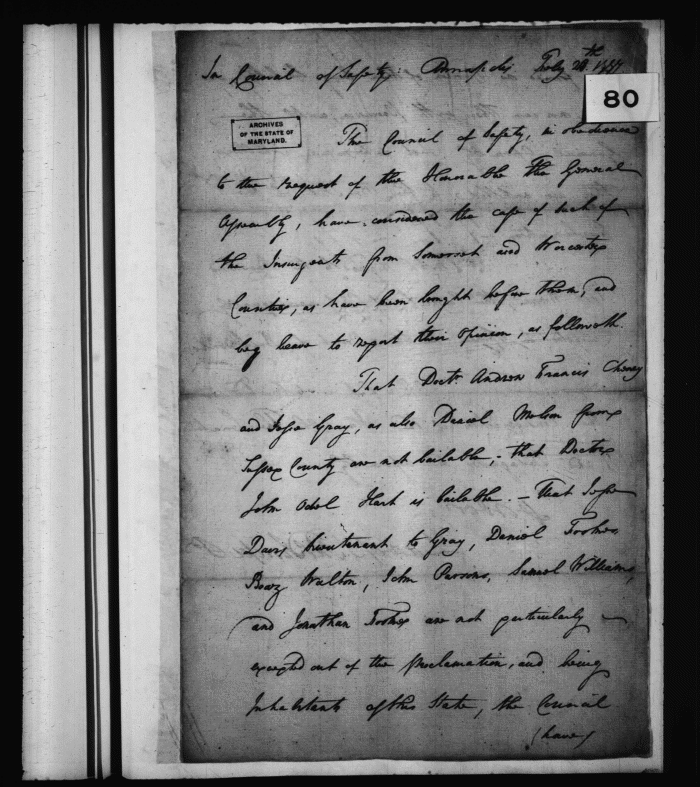 In Council of Safety Annapolis Feby 20th 1777
80
ARCHIVES
OF THE STATE OF
MARYLAND.
The Council of Safety, in obedience
to the request of the Honorable the General
Assembly, have considered the case of such of
the Insurgents from Somerset and Worcester
Counties, as have been brought before them, and
beg leave to report their opinion, as followeth.
That Doctr. Andrew Francis Cheney
and Jesse Gray, as also Daniel from
Sussex County are not bailable, - that Doctor
John Odel Hart is bailable. - That Jesse
Davis Lieutenant to Gray, Daniel
Boaz Walton, John Parsons, Samuel Williams,
and Jonathan are not particularly
excepted out of the Proclamation, and being
Inhabitants of this State, the Council
(have)